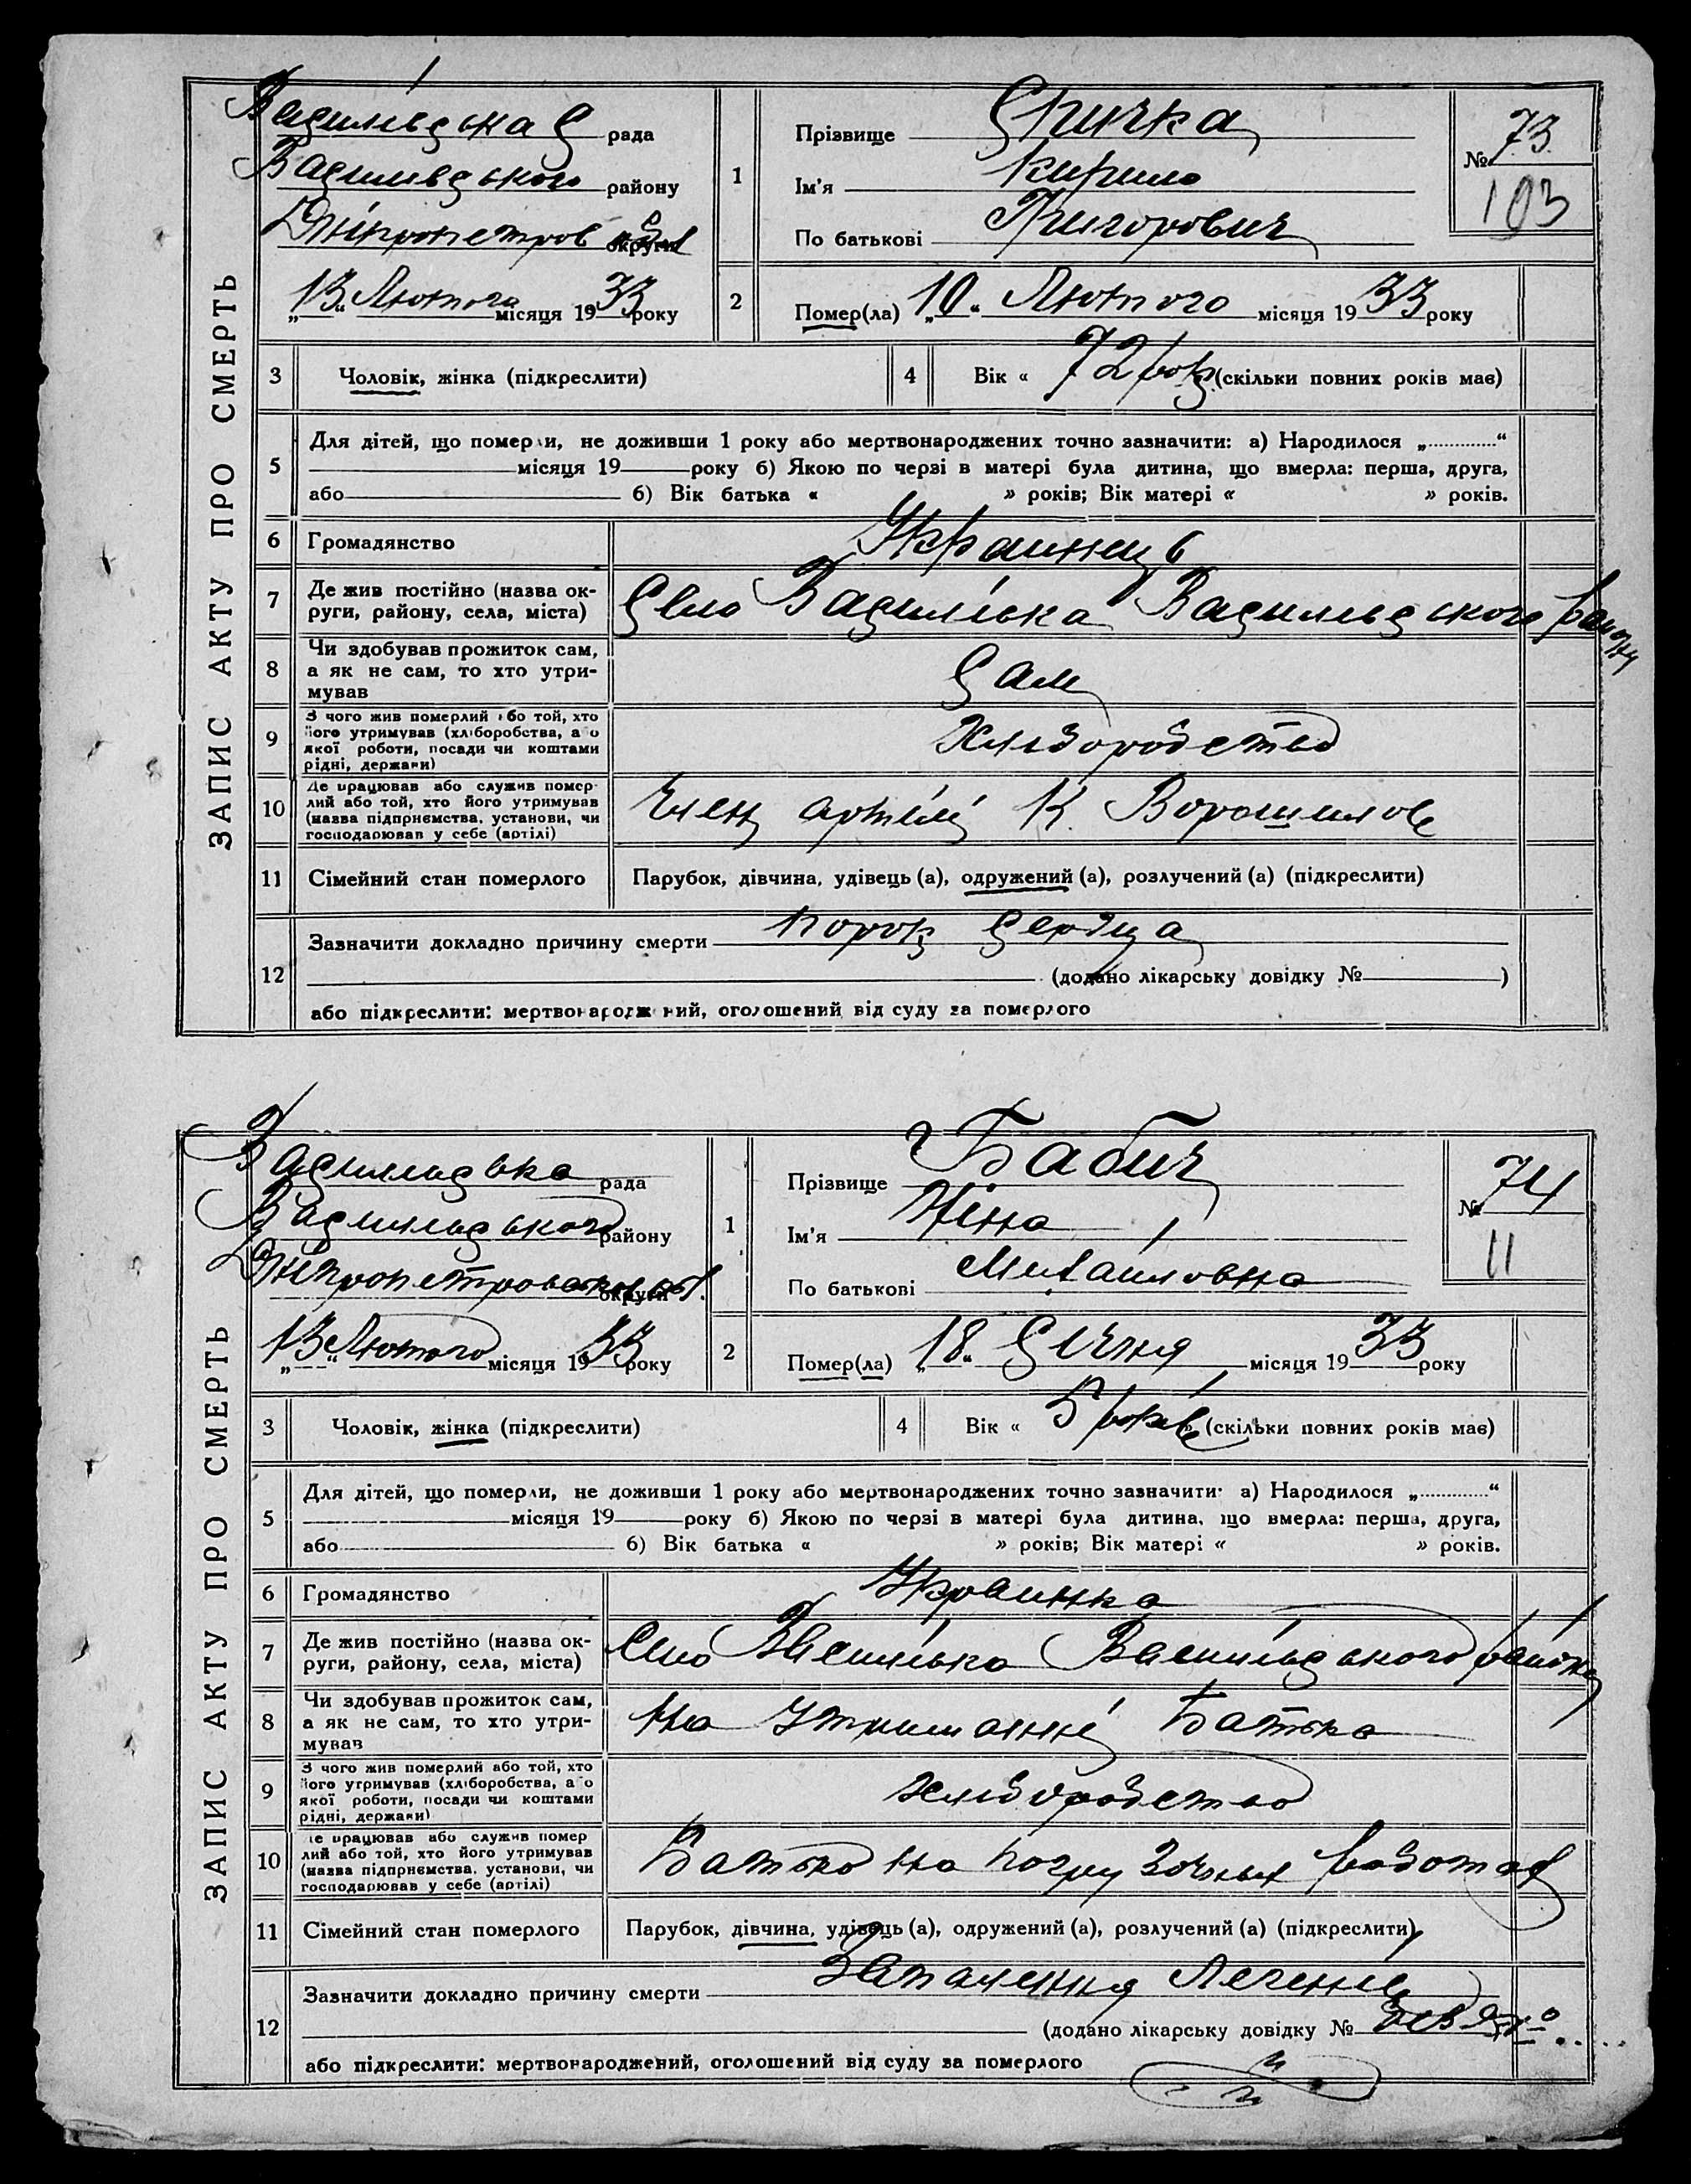 ЗАПИС АКТУ ПРО СМЕРТЬ
Василівська С рада
Василівського району
Дніпропетров округи
„13“ Лютого місяця 1933 року
1
Прізвище Спичка
Ім'я Кирило
По батькові Григорович
№ 73
103
2
Помер(ла) „10“ Лютого місяця 1933 року
3 Чоловік, жінка (підкреслити)
4 Вік « 72 рок. (скільки повних років має)
5 Для дітей, що померли, не доживши 1 року або мертвонароджених точно зазначити: а) Народилося „ “
місяця 19 року б) Якою по черзі в матері була дитина, що вмерла: перша, друга,
або б) Вік батька « » років; Вік матері « » років.
6 Громадянство Украинец
7 Де жив постійно (назва ок-
руги, району, села, міста) Село Василівка Василівського району
8 Чи здобував прожиток сам,
а як не сам, то хто утри-
мував Сам
9 З чого жив померлий або той, хто
його утримував (хліборобства, або
якої роботи, посади чи коштами
рідні, держави) Хліборобство
10 Де працював або служив помер-
лий або той, хто його утримував
(назва підприємства, установи, чи
господарював у себе (артілі) Член артілі К. Ворошилова
11 Сімейний стан померлого Парубок, дівчина, удівець (а), одружений (а), розлучений (а) (підкреслити)
12 Зазначити докладно причину смерти порок сердца
(додано лікарську довідку № )
або підкреслити: мертвонароджений, оголошений від суду за померлого
ЗАПИС АКТУ ПРО СМЕРТЬ
Василівська рада
Василівського району
Дніпропетровськ обл. округи
„13“ Лютого місяця 1933 року
1
Прізвище Бабич
Ім'я Ніна
По батькові Михаиловна
№ 74
11
2
Помер(ла) „18“ Січня місяця 1933 року
3 Чоловік, жінка (підкреслити)
4 Вік « 5 років (скільки повних років має)
5 Для дітей, що померли, не доживши 1 року або мертвонароджених точно зазначити: а) Народилося „ “
місяця 19 року б) Якою по черзі в матері була дитина, що вмерла: перша, друга,
або б) Вік батька « » років; Вік матері « » років.
6 Громадянство Украинка
7 Де жив постійно (назва ок-
руги, району, села, міста) Село Василівка Василівського району
8 Чи здобував прожиток сам,
а як не сам, то хто утри-
мував На утриманні Батька
9 З чого жив померлий або той, хто
його утримував (хліборобства, або
якої роботи, посади чи коштами
рідні, держави) Хліборобство
10 Де працював або служив помер
лий або той, хто його утримував
(назва підприємства, установи, чи
господарював у себе (артілі) Батько на погрузочных работах
11 Сімейний стан померлого Парубок, дівчина, удівець (а), одружений (а), розлучений (а) (підкреслити)
12 Зазначити докладно причину смерти Запалення Легенів
(додано лікарську довідку №
або підкреслити: мертвонароджений, оголошений від суду за померлого